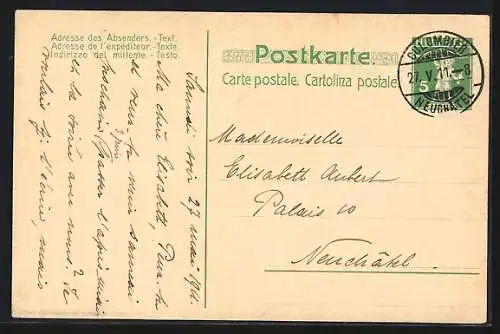 Adresse des Absenders. - Text.
Adresse de l'expéditeur. - Texte.
Indirizzo del mittente. - Testo.
Postkarte
Carte postale. Cartolina postale
COLOMBIER
27. V. 11. - 8
NEUCHÂTEL
5
Mademoiselle
Elisabeth Aubert
Palais 10
Neuchâtel.
Samedi soir 27 mai 1911.
Ma chère Elisabeth, Peux-tu
te venir samedi
3 juin
prochain passer l'après-midi
et la soirée avec nous? Je
voulais t'écrire, mais